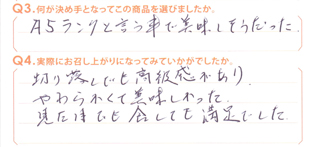 Q3.何が決め手となってこの商品を選びましたか。
A5ランクと言う事で美味しそうだった。
Q4.実際にお召し上がりになってみていかがでしたか。
切り落しでも高級感があり
やわらかくて美味しかった。
見た目でも食しても満足でした。